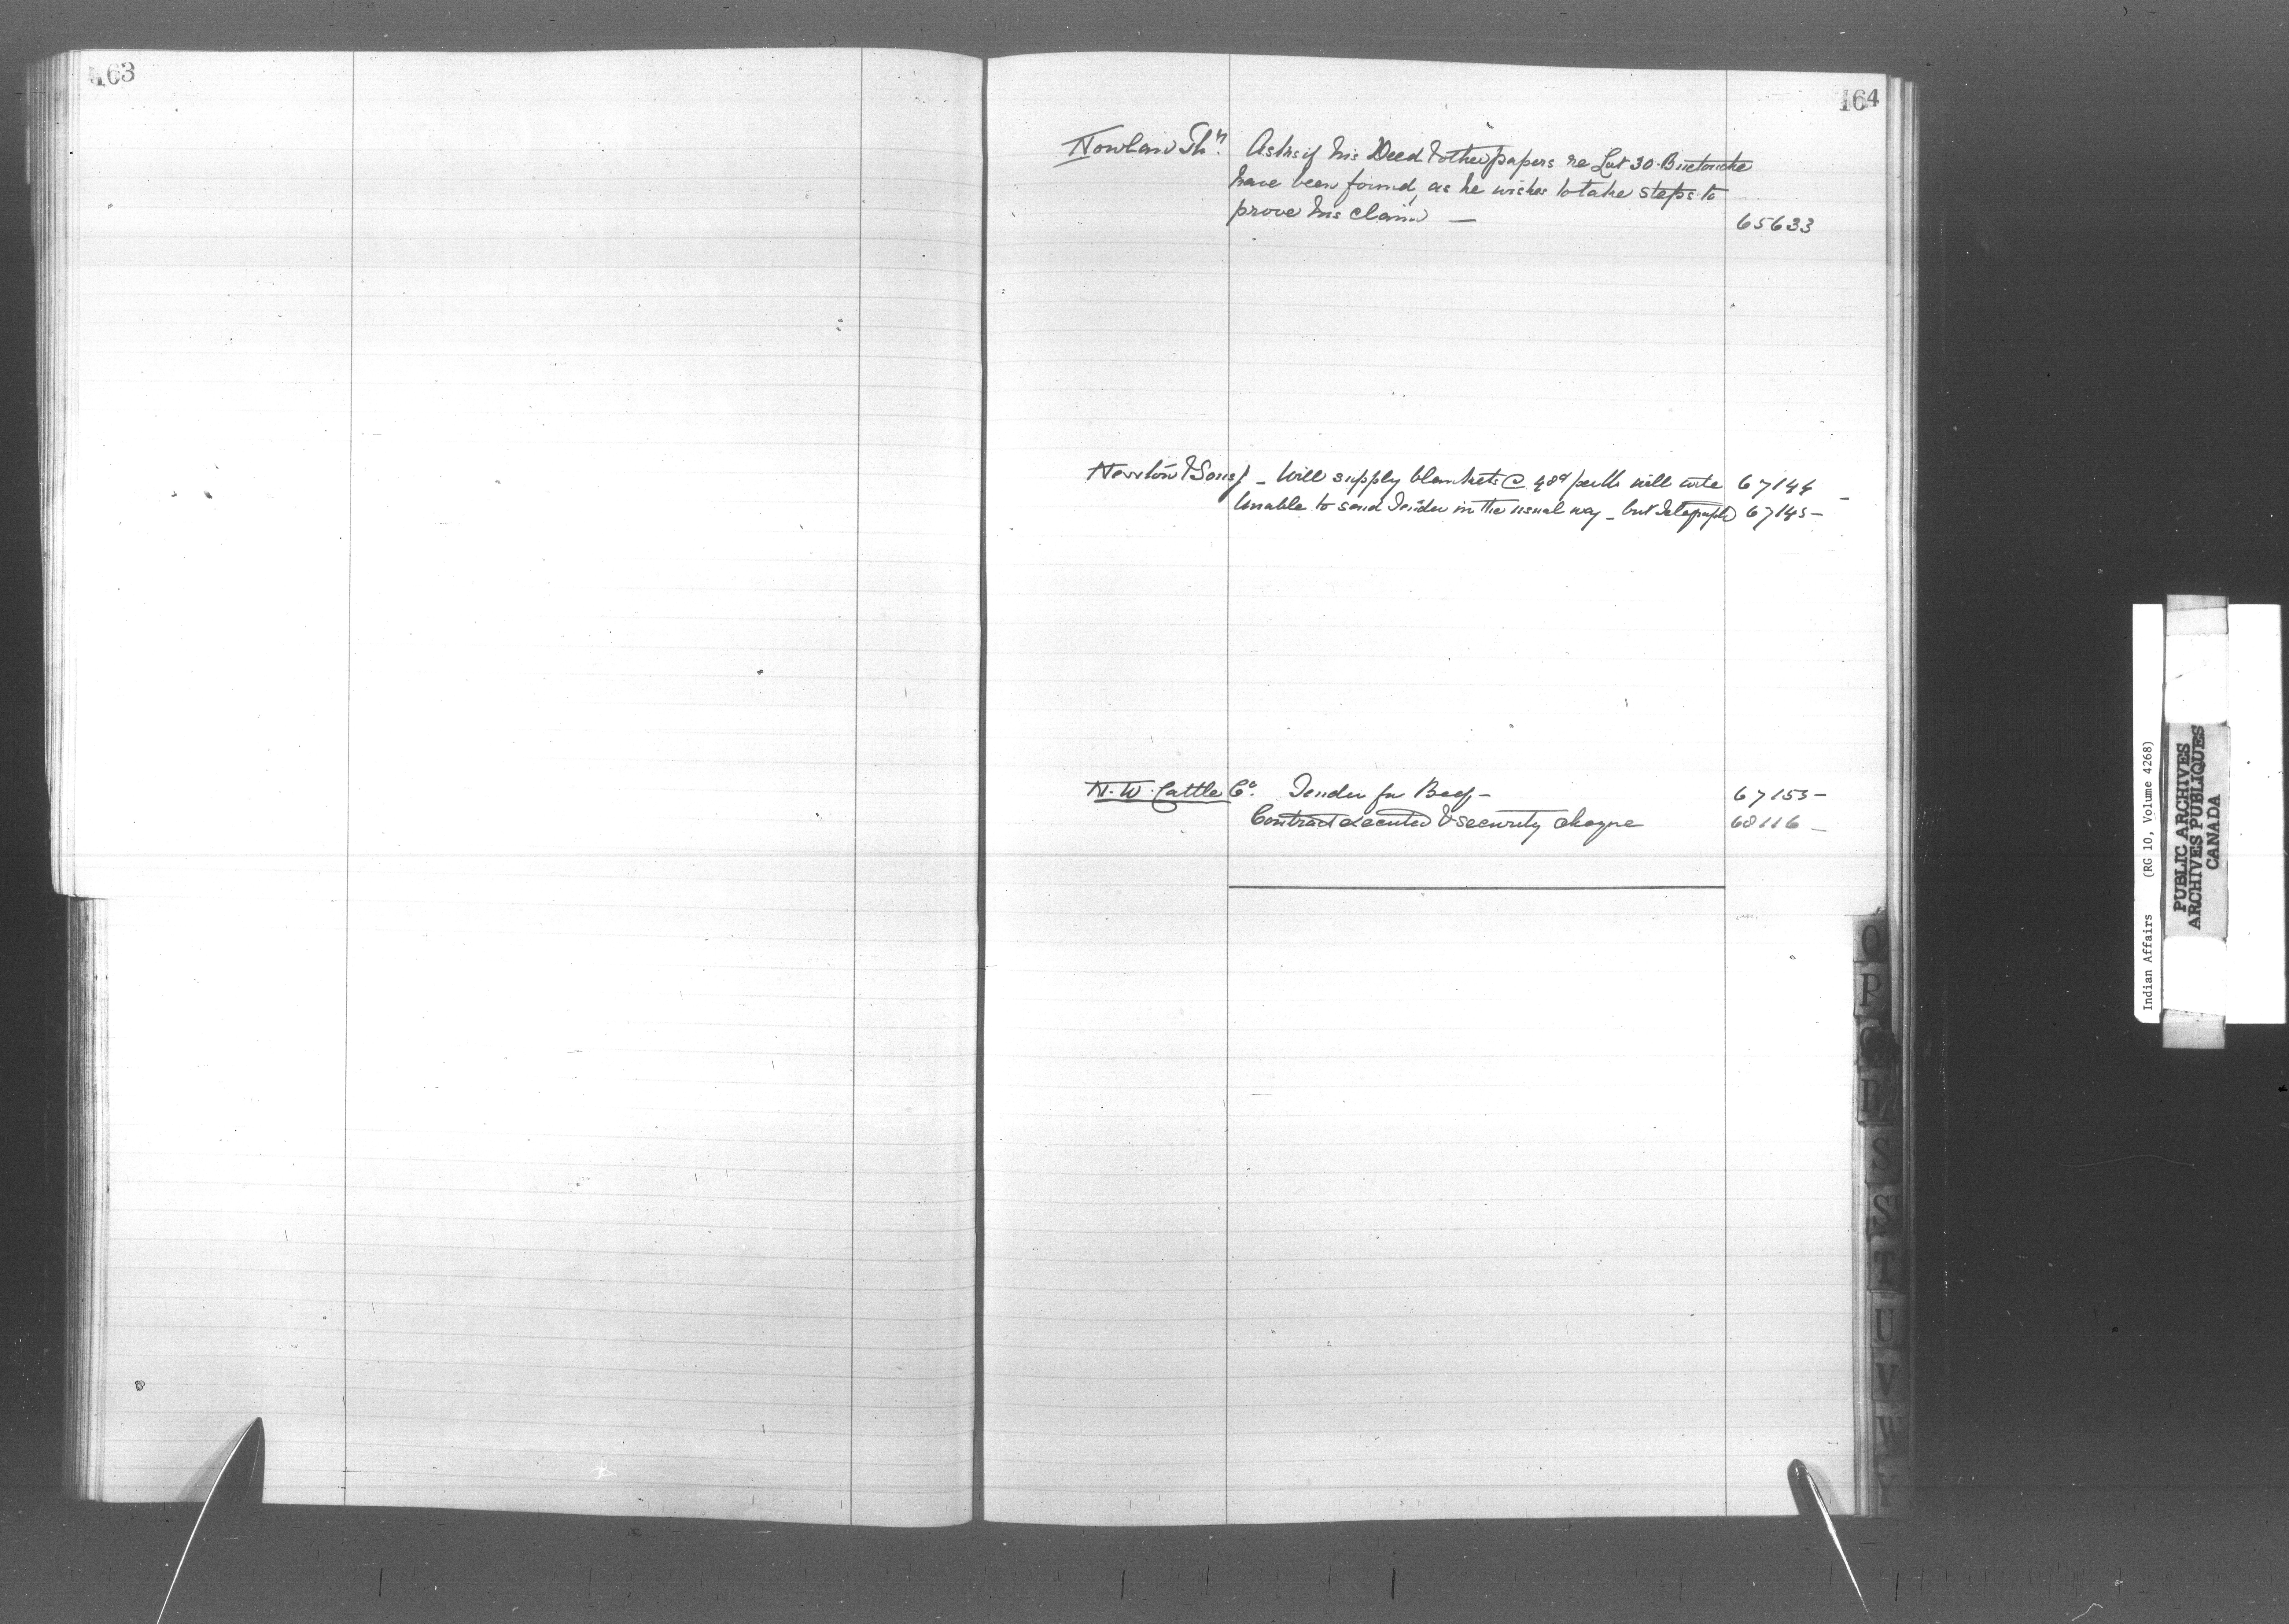 163
164
Nowlan Th. Asks if his Deed & other papers re Lot 30. Buctouche
have been found, as he wishes to take steps to
prove his claim — 65633
Newton & Sons J — Will supply blankets @ 48¢ per lb will write 67144 —
Unable to send Tender in the usual way — but Telegraph 67145 —
N. W. Cattle Co. Tender for Beef — 67153 —
Contract executed & security cheque 68116 —
O
P
Q
R
S
S
T
U
V
W
Y
Indian Affairs (RG 10, Volume 4268)
PUBLIC ARCHIVES
ARCHIVES PUBLIQUES
CANADA